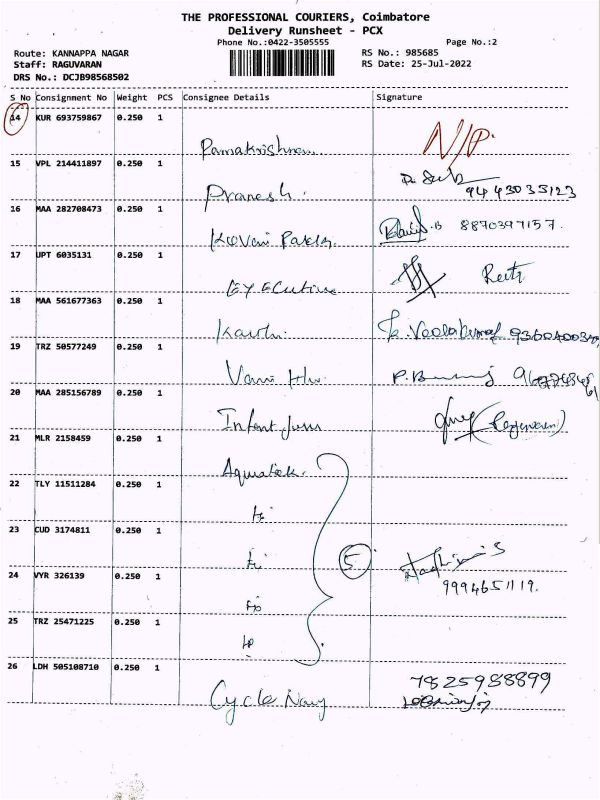 THE PROFESSIONAL COURIERS, Coimbatore
Delivery Runsheet - PCX
Phone No.:0422-3505555 Page No.:2
Route: KANNAPPA NAGAR RS No.: 985685
Staff: RAGUVARAN RS Date: 25-Jul-2022
DRS No.: DCJB98568502
S No Consignment No Weight PCS Consignee Details Signature
14 KUR 693759867 0.250 1
Ramakrishnan N/P.
15 VPL 214411897 0.250 1
Pranesh. 9443035123
16 MAA 282708473 0.250 1
8870397157.
17 UPT 6035131 0.250 1
EXECutive
18 MAA 561677363 0.250 1
19 TRZ 50577249 0.250 1
20 MAA 285156789 0.250 1
Infant
21 MLR 2158459 0.250 1
Aquatek.
22 TLY 11511284 0.250 1
23 CUD 3174811 0.250 1
5
24 VYR 326139 0.250 1
9994651119.
25 TRZ 25471225 0.250 1
26 LDH 505108710 0.250 1
Cycle 7825988899